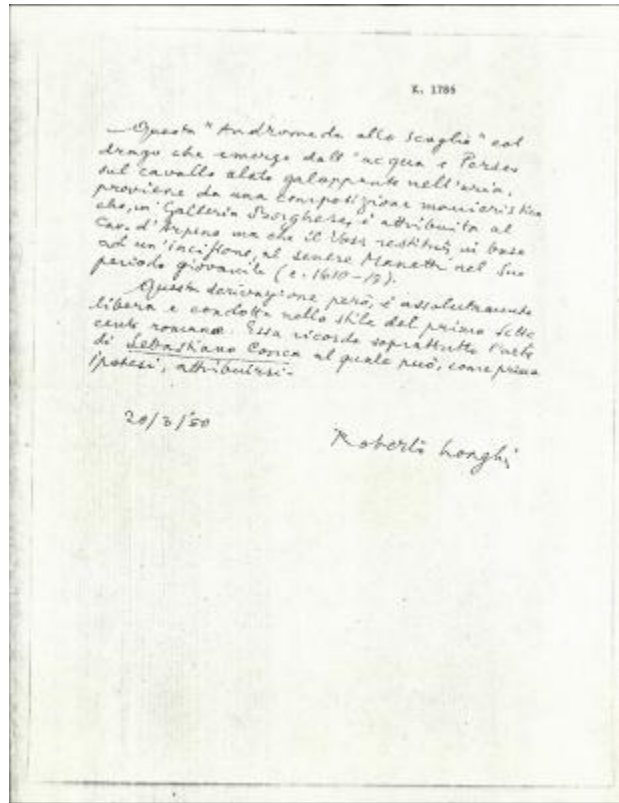 K. 1786
Questa "Andromeda allo scoglio" col
drago che emerge dall'acqua e Perseo
sul cavallo alato galoppante nell'aria,
proviene da una composizione manieristica
che, in Galleria Borghese, è attribuita al
Cav. d'Arpino ma che il Voss restituì, in base
ad un'incisione, al senese Manetti nel suo
periodo giovanile (c. 1610-
Questa derivazione però, è assolutamente
libera e condotta nello stile del primo Sette
cento romano. Essa ricorda soprattutto l'arte
di Sebastiano Conca al quale può, come prima
ipotesi, attribuirsi.
20/3/50
Roberto Longhi